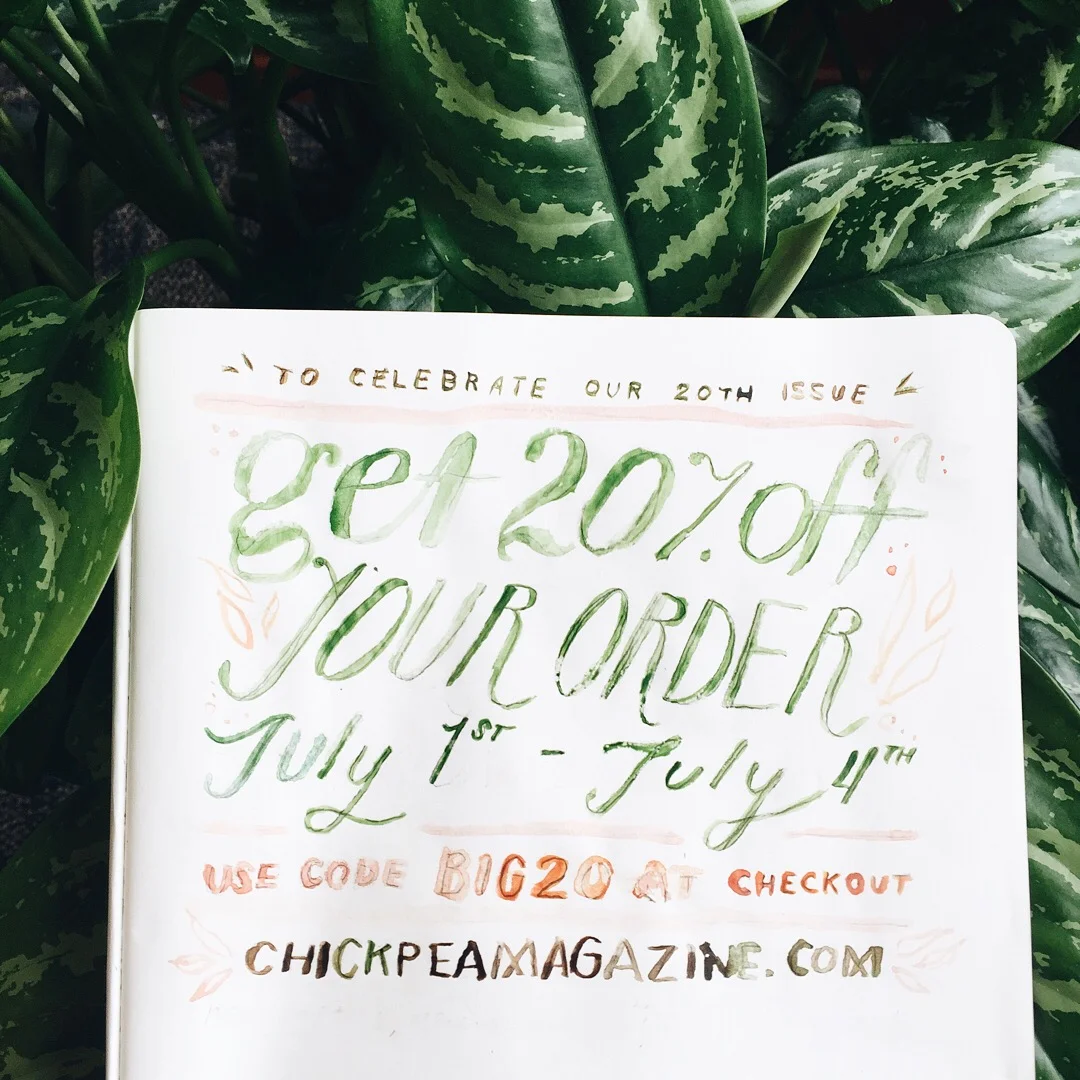 TO CELEBRATE OUR 20TH ISSUE
get 20% off
YOUR ORDER
July 1ST - July 4TH
USE CODE BIG20 AT CHECKOUT
CHICKPEAMAGAZINE.COM